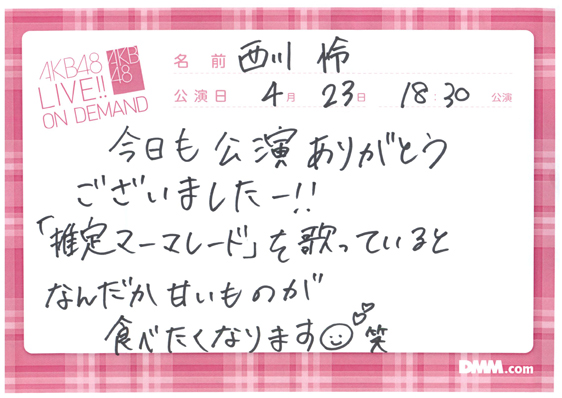 AKB48
LIVE!!
ON DEMAND
AKB
48
名前 西川 怜
公演日 4月 23日 18:30 公演
今日も公演ありがとう
ございましたー!!
「推定マーマレード」を歌っていると
なんだか甘いものが
食べたくなります笑
DMM.com